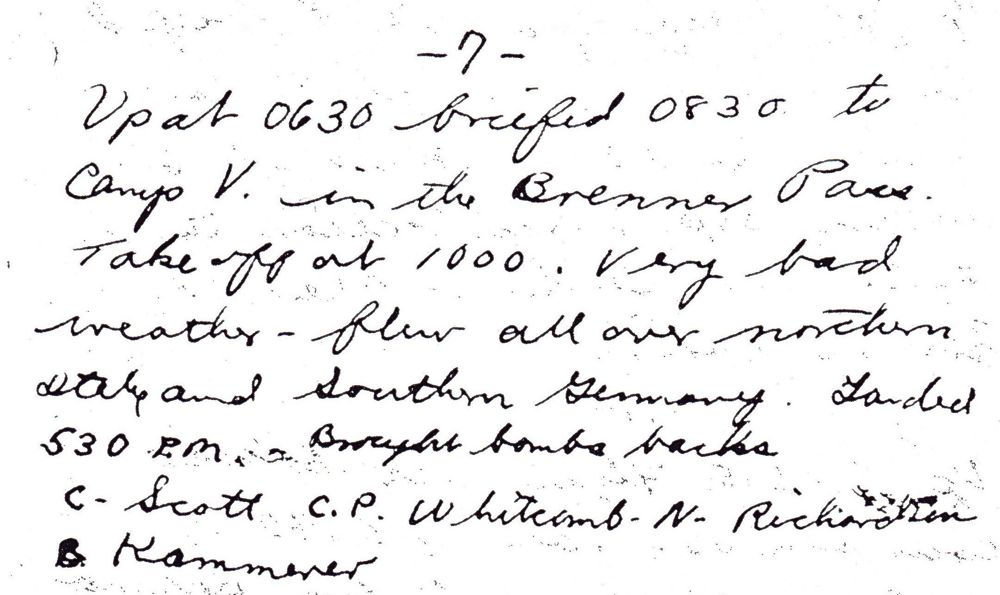 -7-
Up at 0630 briefed 0830 to
Camp V. in the Brenner Pass.
Take off at 1000. Very bad
weather - flew all over northern
Italy and Southern Germany. Landed
530 P.M. - Brought bombs back
C - Scott C.P. Whitcomb - N - Richardson
B Kammerer